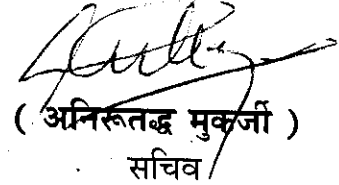 ( अनिरूतद्ध मुकर्जी )
सचिव